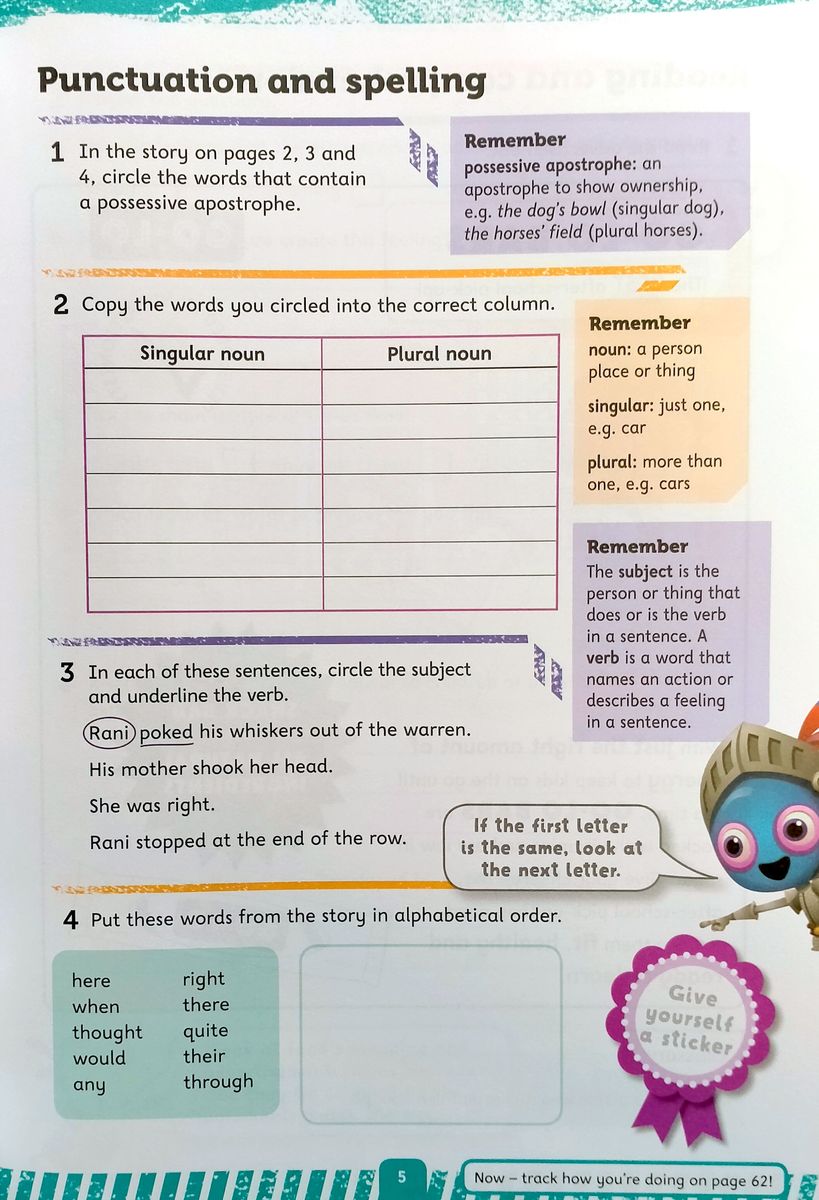 Punctuation and spelling
1 In the story on pages 2, 3 and
4, circle the words that contain
a possessive apostrophe.
Remember
possessive apostrophe: an
apostrophe to show ownership,
e.g. the dog's bowl (singular dog),
the horses' field (plural horses).
2 Copy the words you circled into the correct column.
Singular noun Plural noun
Remember
noun: a person
place or thing
singular: just one,
e.g. car
plural: more than
one, e.g. cars
Remember
The subject is the
person or thing that
does or is the verb
in a sentence. A
verb is a word that
names an action or
describes a feeling
in a sentence.
3 In each of these sentences, circle the subject
and underline the verb.
Rani poked his whiskers out of the warren.
His mother shook her head.
She was right.
Rani stopped at the end of the row.
If the first letter
is the same, look at
the next letter.
4 Put these words from the story in alphabetical order.
here right
when there
thought quite
would their
any through
Give
yourself
a sticker
5
Now – track how you're doing on page 62!